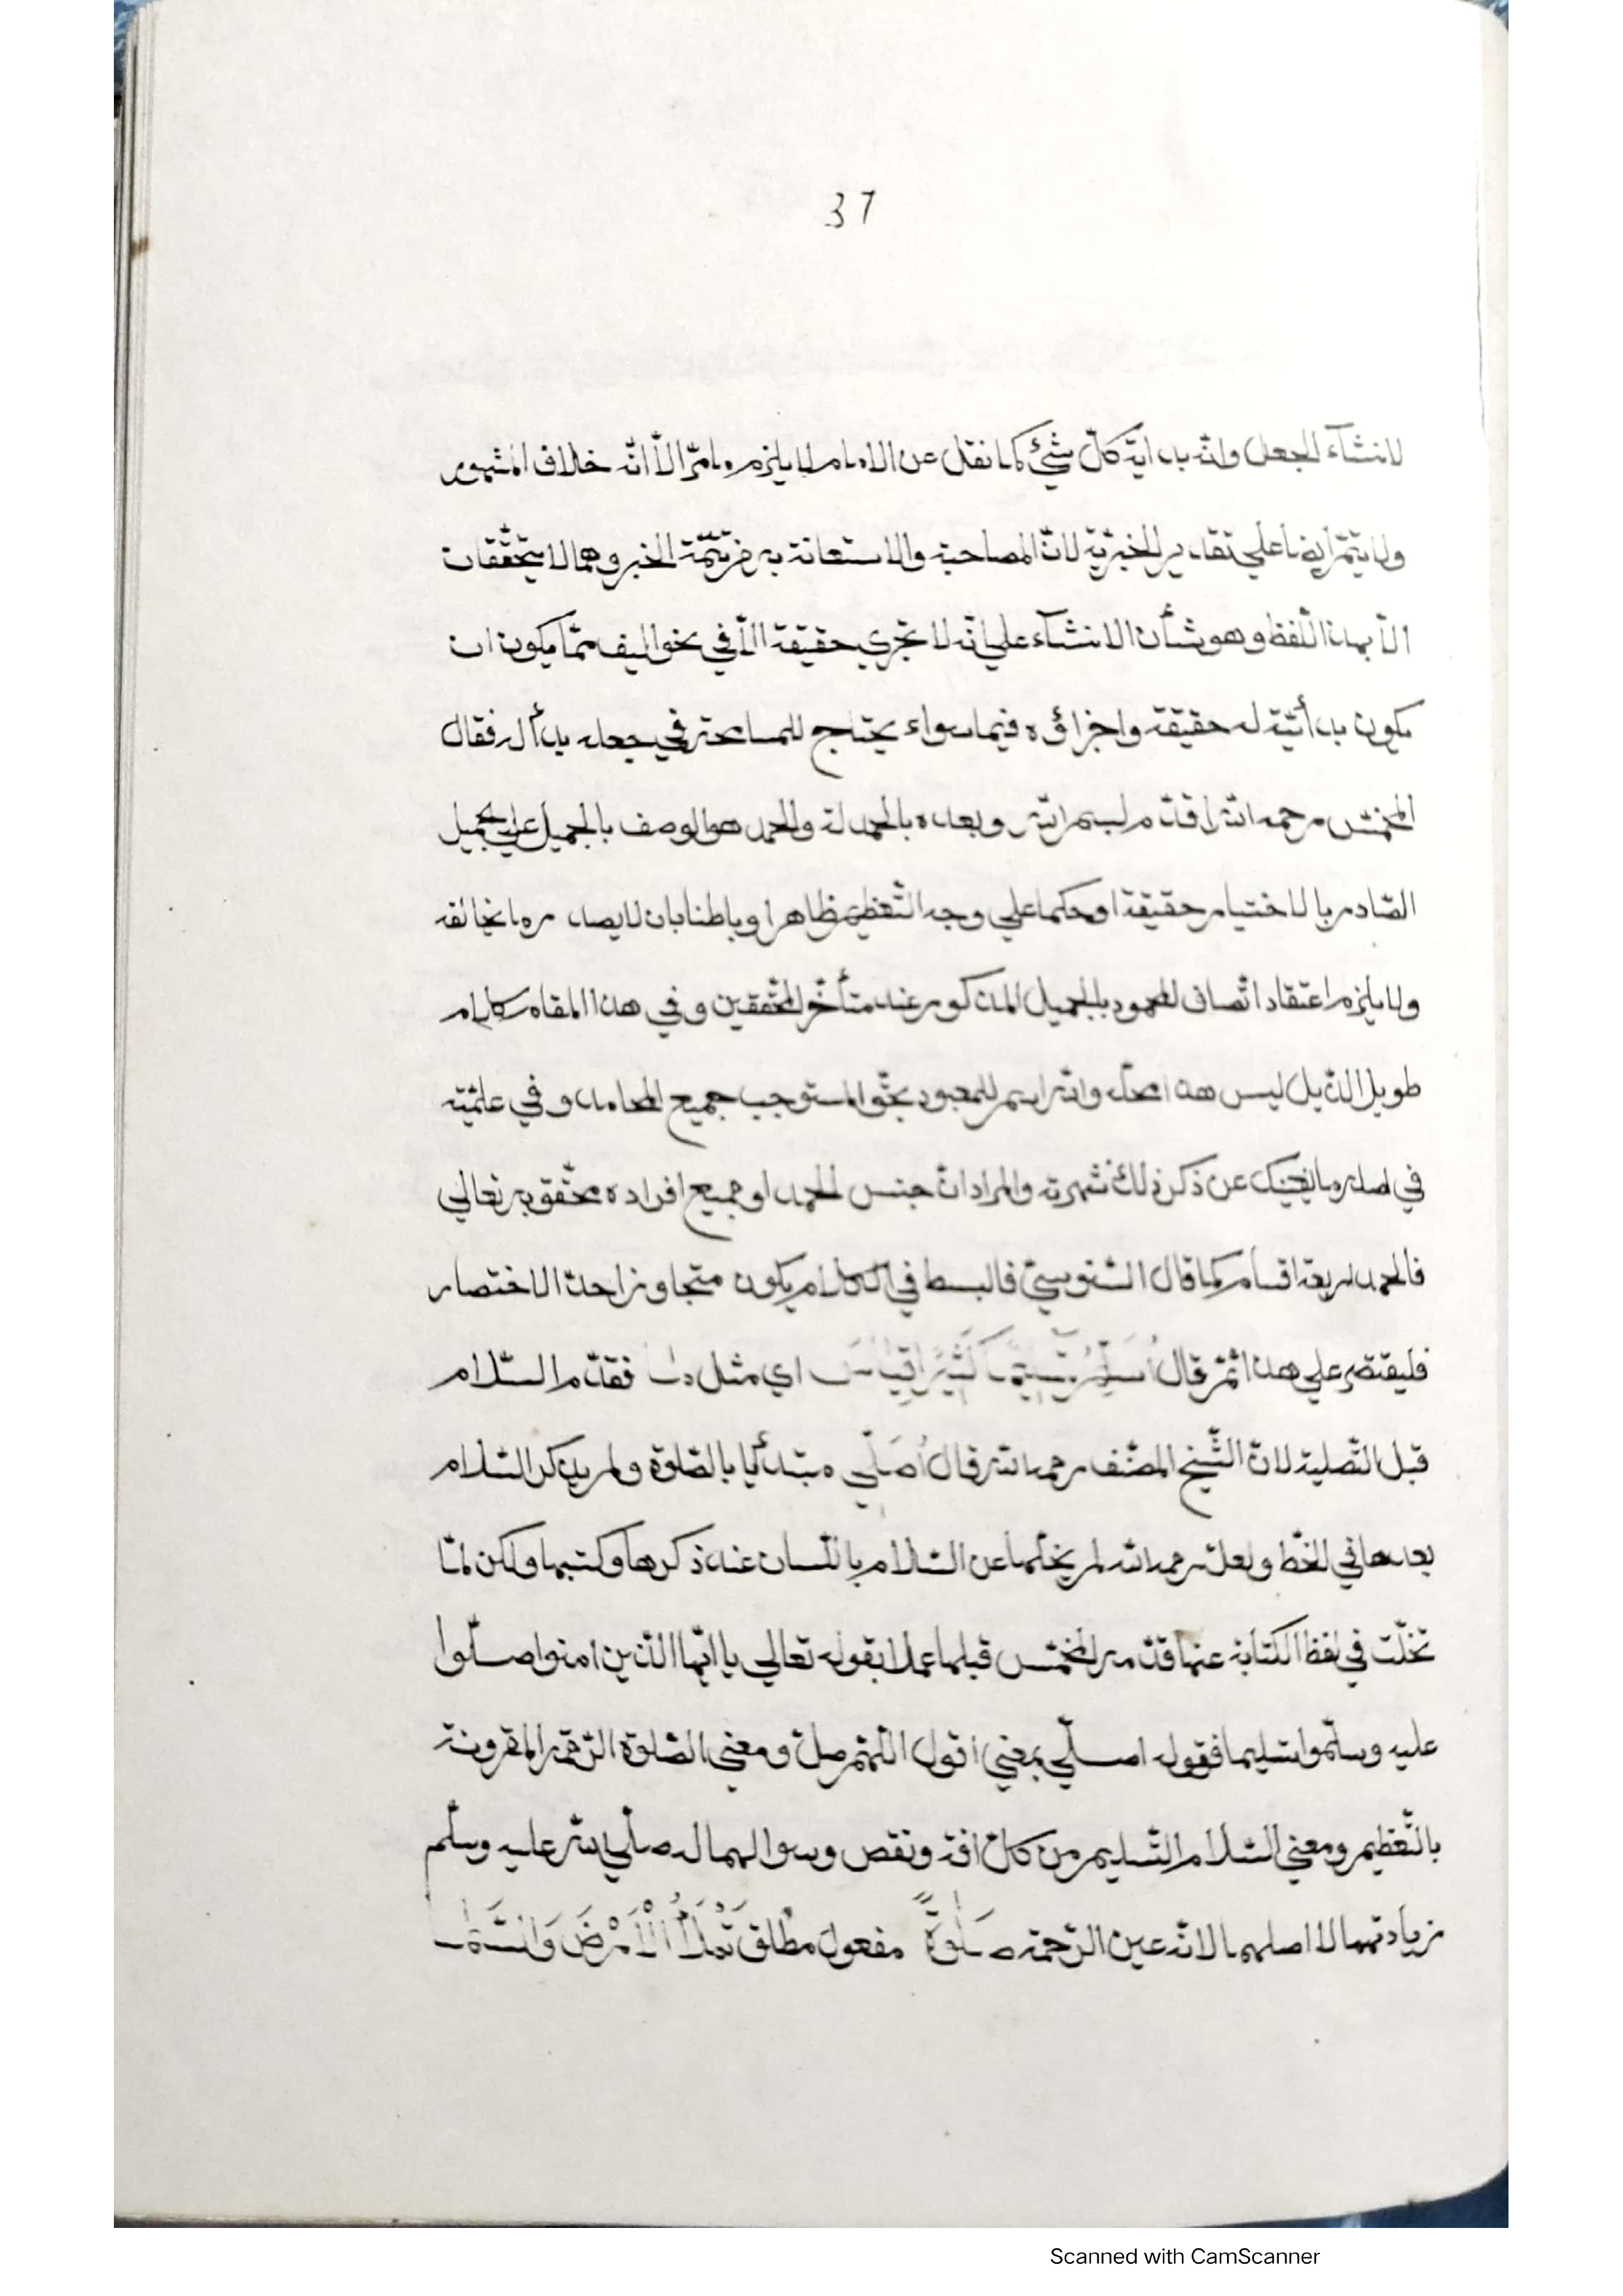 37
لانشآء الجعل وانّه بدايّة كلّ شئ كما نقل عن الامام لا يلزمه ما مرّ الاّ انّه خلاف المشهور
ولا يتمّ ايضا على تقدير الخبريّة لانّ المصاحبة والاستعانة به من تتمّة الخبر وهما لا يتحقّقان
الاّ بهذا اللّفظ وهو شأن الانشآء على انّه لا تجري حقيقة الاّ في نحو اليف ممّا يكون ان
يكون بدأتيّة له حقيقة واجزاؤه فيما سواء يحتاج للمسامحة في جعله بدأ له فقال
المخمّس رحمه الله اقتدم لبسم الله وبعده بالحمدلة والحمد هو الوصف بالجميل على الجميل
الصّادر بالاختيار حقيقة او حكما على وجه التّعظيم ظاهرا وباطنا بان لا يصدره ما يخالفه
ولا يلزم اعتقاد اتّصاف المحمود بالجميل المذكور عند متأخّر المحقّقين وفي هذا المقام كلام
طويل الذّيل ليس هذا محلّه والله اسم للمعبود بحقّ المستوجب جميع المحامد وفي علميّته
في اصله ما يغنيك عن ذكر ذلك شهرته والمراد انّ جنس الحمد او جميع افراده محقّق به تعالى
فالحمد اربعة اقسام كما قال السّنوسيّ فالبسط في الكلام يكون متجاوزا حدّ الاختصار
فليقتصر على هذا ثمّ قال أُسَلِّمُ تسليمًا كَثِيرًا اي مثل فقدّم السّلام
قبل التّصلية لانّ الشّيخ المصنّف رحمه الله قال أُصَلِّي مبتدأ يا بالصّلوة ولم يذكر السّلام
بعدها في الخطّ ولعلّه رحمه الله لم يخلّها عن السّلام باللّسان عند ذكرها وكتبها ولكن لمّا
تخلّت في لفظ الكتابة عنها قدّمه المخمّس قبلها عملا بقوله تعالى يا ايّها الّذين امنوا صلّوا
عليه وسلّموا تسليما فقوله اصلّي بمعنى اقول اللّهمّ صلّ ومعنى الصّلوة الرّحمة المقرونة
بالتّعظيم ومعنى السّلام التّسليم من كلّ افة ونقص وسوالهما له صلّى الله عليه وسلّم
زيادتهما لا اصلهما لانّه عين الرّحمة صَلٰوةً مفعول مطلق تَمْلَأُ الْأَرْضَ وَالسَّمٰـ
Scanned with CamScanner